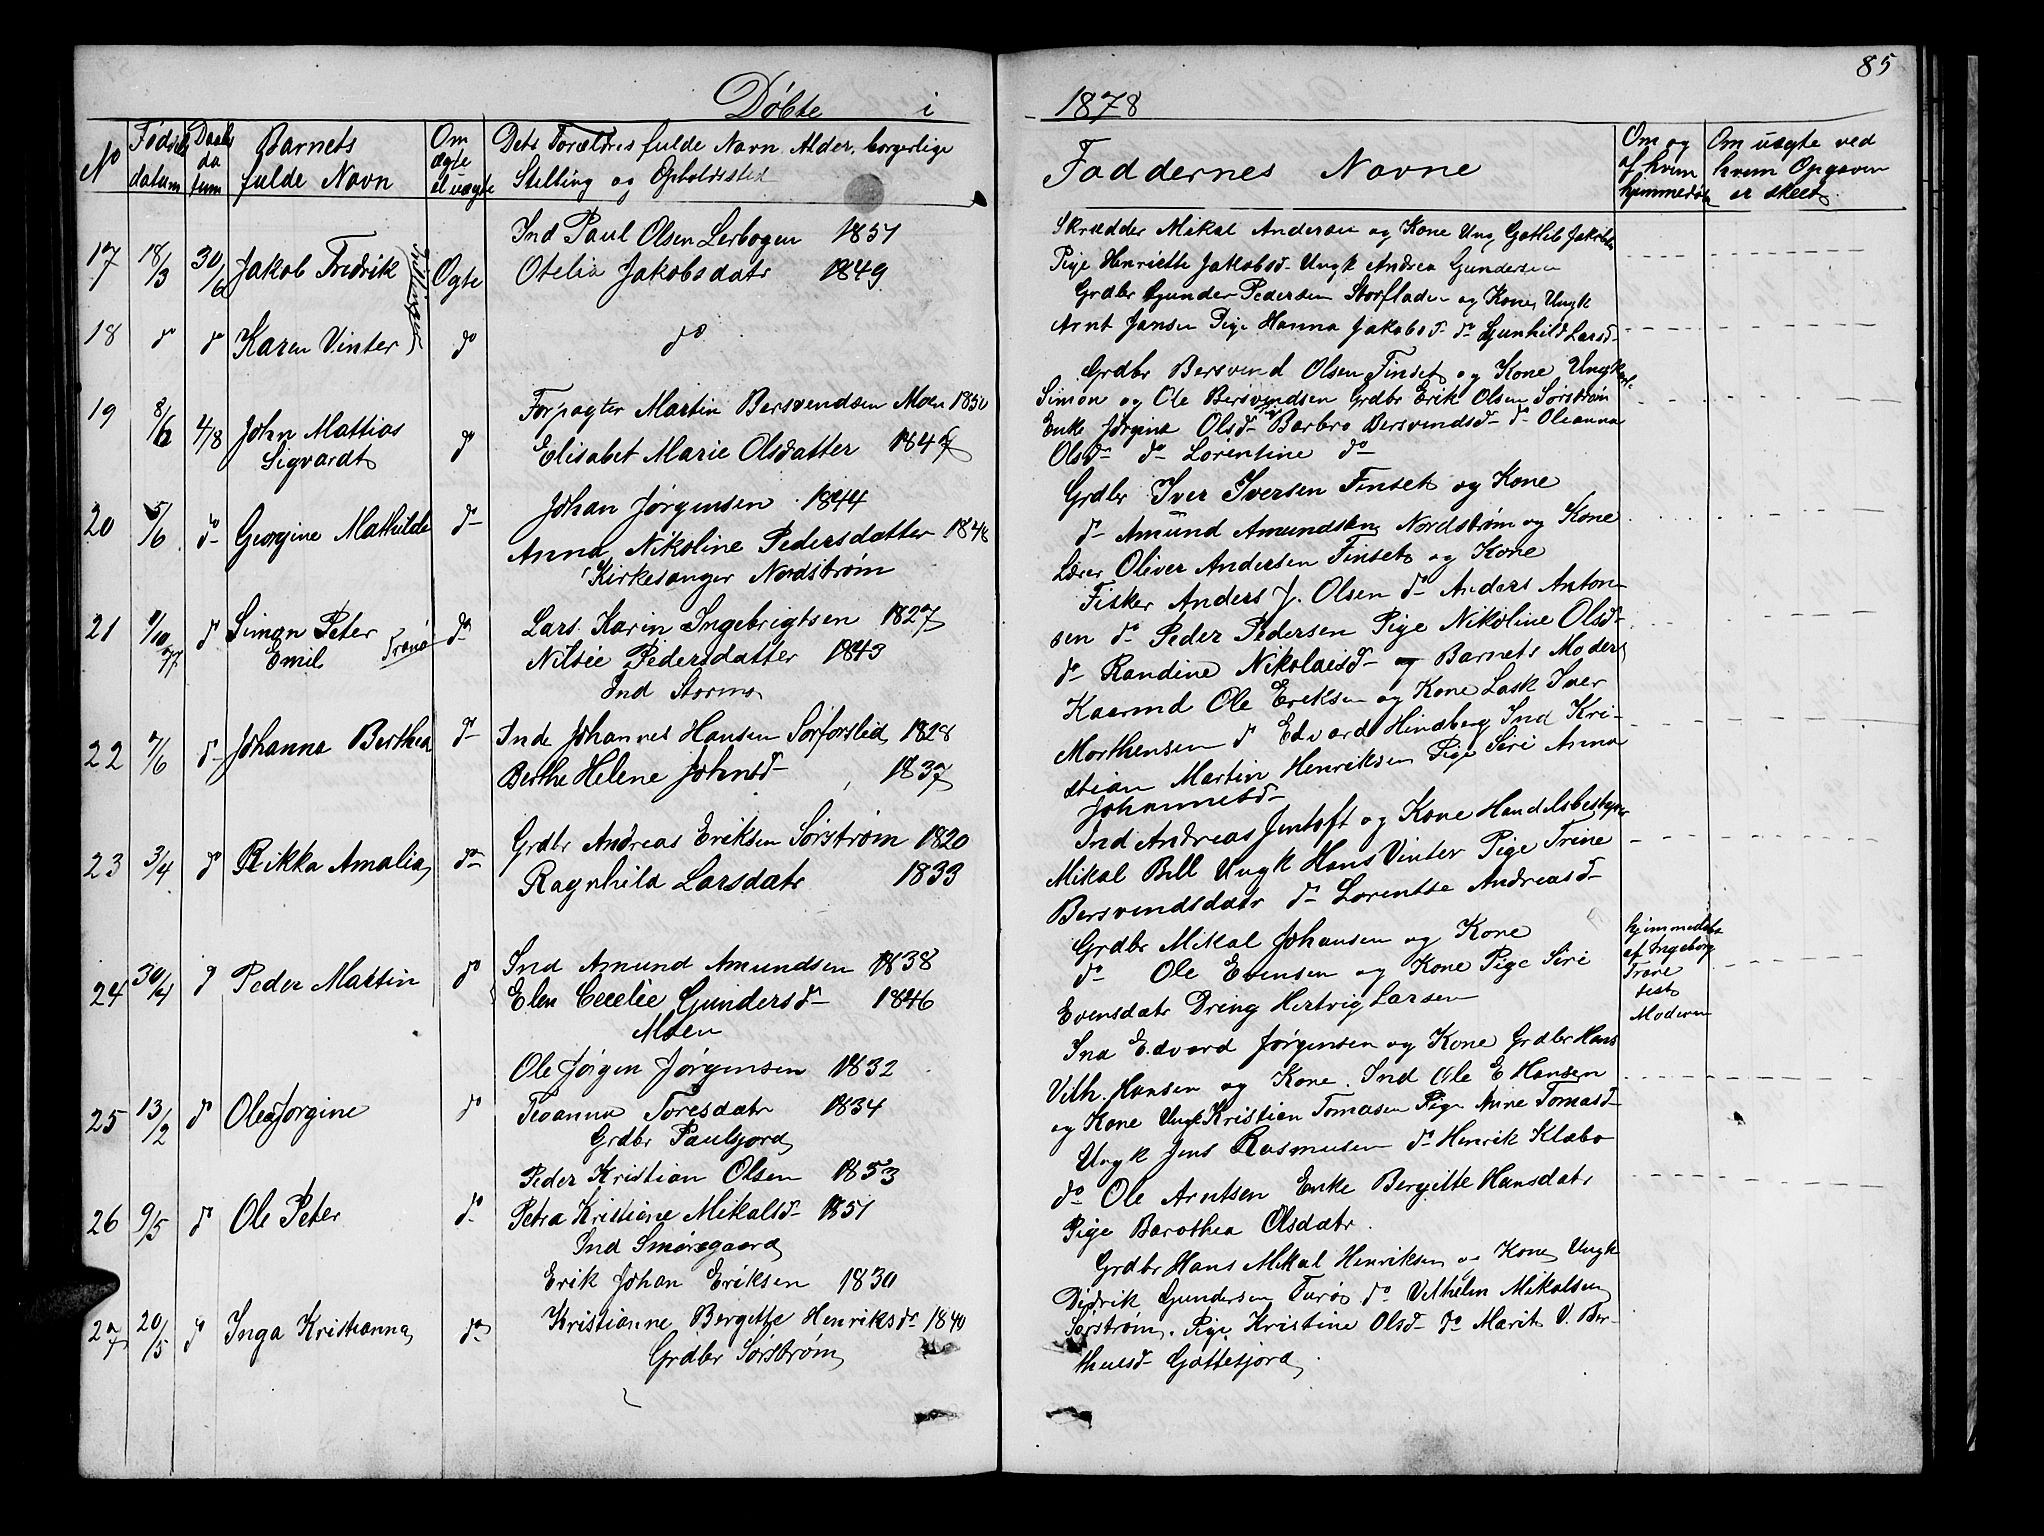 85
Döbte i 1878
No
Fødsels datum
Daabs da tum
Barnets fulde Navn
Om ægte el uægte
Dets Forældres fulde Navn, Alder, borgerlige
Stilling og Opholdssted
Faddernes Navne
Om og af hvem hjemmedøbt
Om uægte ved hvem Opgaven er skeet
17 18/3 30/6 Jakob Fredrik Ogte
Tvillinger
Ind Paul Olsen Lerbogen 1851
Otelia Jakobsdatr 1849
Skrædder Mikal Andersen og Kone Ung Gotlib Jakobsen
Pige Henriette Jakobsd Ungk Andrea Gundersen
18 do do Karen Vinter do
do
Grdbr Gunder Pedersen Storfladen og Kone, Ungk
Arnt Jansen Pige Hanna Jakobsd do Gunhild Larsd
19 8/6 4/8 John Mattias
Sigvardt do
Forpagter Martin Bersvendsen Moen 1850
Elisabet Marie Olsdatter 1847
Grdbr Bersvend Olsen Finset og Kone Ungkarl
Simon og Ole Bersvendsen Grdbr Erik Olsen Sørstrøm
Enke Jørgine Olsd Barbro Bersvendsd do Oleanna
Olsd do Lorentine do
20 5/6 do Georgine Mathilde do
Johan Jørgensen 1844
Anna Nikoline Pedersdatter 1848
Kirkesanger Nordstrøm
Grdbr Iver Iversen Finset og Kone
do Amund Amundsen Nordstrøm og Kone
Lærer Oliver Andersen Finset og Kone
21 9/10 77 do Simon Peter
Emil Tranø do
Lars Karin Ingebrigtsen 1827
Nilsie Pedersdatter 1843
Ind Stormo
Fisker Anders J. Olsen do Anders Anton-
sen do Peder Pedersen Pige Nikoline Olsd
do Randine Nikolaisd og Barnets Moder
22 7/6 do Johanna Berthea do
Inde Johannes Hansen Sørforslid 1828
Berthe Helene Johnsd 1837
Kaarmd Ole Eriksen og Kone Lask Iver
Morthensen do Edvard Hindberg Ind Kri-
stian Martin Henriksen Pige Siri Anna
Johannesd
23 3/4 do Rikka Amalia do
Grdbr Andreas Eriksen Sørstrøm 1820
Ragnhild Larsdatr 1833
Ind Andreas Jentoft og Kone Handelsbestyrer
Mikal Bell Ungk Hans Vinter Pige Trine
Bersvendsdatr do Lorentse Andreasd
24 30/4 do Peder Martin do
Ind Amund Amundsen 1838
Elen Cecelie Gundersd 1846
Moen
Grdbr Mikal Johansen og Kone
do Ole Evensen og Kone Pige Siri
Evensdatr Dreng Hertvig Larsen
hjemmedøbt
af Ingeborg
Trare
test
Moderen
25 13/2 do Olea Jorgine do
Ole Jörgen Jörgensen 1832
Teoanna Toresdatr 1834
Grdbr Paulsjord
Ind Edvard Jørgensen og Kone Grdbr Hans
Vilh. Hansen og Kone. Ind Ole E Hansen
og Kone Ungk Kristian Tomasen Pige Anne Tomasd
26 9/5 do Ole Peter do
Peder Kristian Olsen 1853
Petra Kristiane Mikalsd 1851
Ind Smørsgaard
Ungk Jens Rasmusen do Henrik Klæbo
do Ole Arntsen Enke Bergitte Hansdatr
Pige Barothea Olsdatr.
27 20/5 do Inga Kristianna do
Erik Johan Eriksen 1830
Kristianne Bergitte Henriksdr 1840
Grdbr Sørstrøm
Grdbr Hans Mikal Henriksen og Kone Ungk
Didrik Gundersen Turøs do Vilhelm Mikalsen
Sørstrøm. Pige Kristine Olsd do Marit V. Ber-
theusd Gottesjord